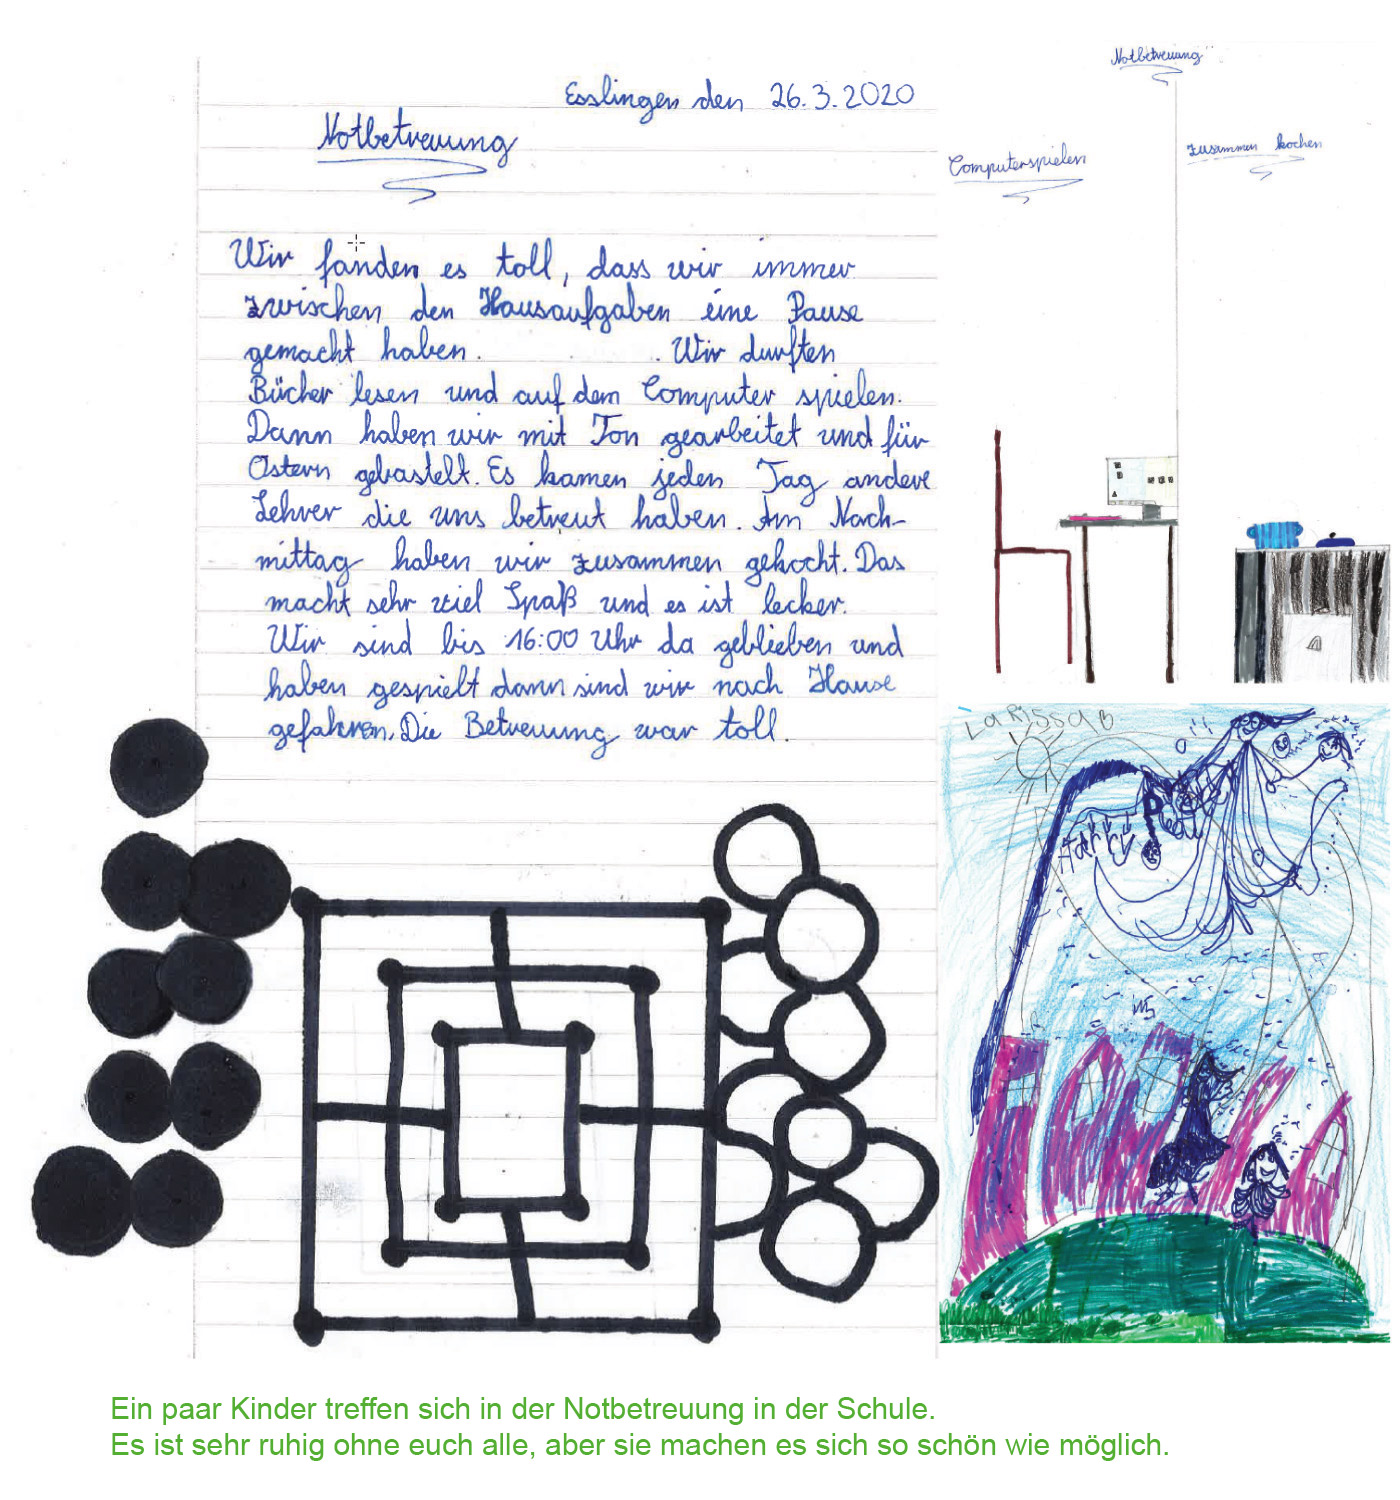 Esslingen den 26.3.2020
Notbetreuung
Wir fanden es toll, dass wir immer
zwischen den Hausaufgaben eine Pause
gemacht haben. . Wir durften
Bücher lesen und auf dem Computer spielen.
Dann haben wir mit Ton gearbeitet und für
Ostern gebastelt. Es kamen jeden Tag andere
Lehrer die uns betreut haben. Am Nach-
mittag haben wir zusammen gekocht. Das
macht sehr viel Spaß und es ist lecker.
Wir sind bis 16:00 Uhr da geblieben und
haben gespielt dann sind wir nach Hause
gefahren. Die Betreuung war toll.
Notbetreuung
Computerspielen
zusammen kochen
LaRissaB
Ein paar Kinder treffen sich in der Notbetreuung in der Schule.
Es ist sehr ruhig ohne euch alle, aber sie machen es sich so schön wie möglich.